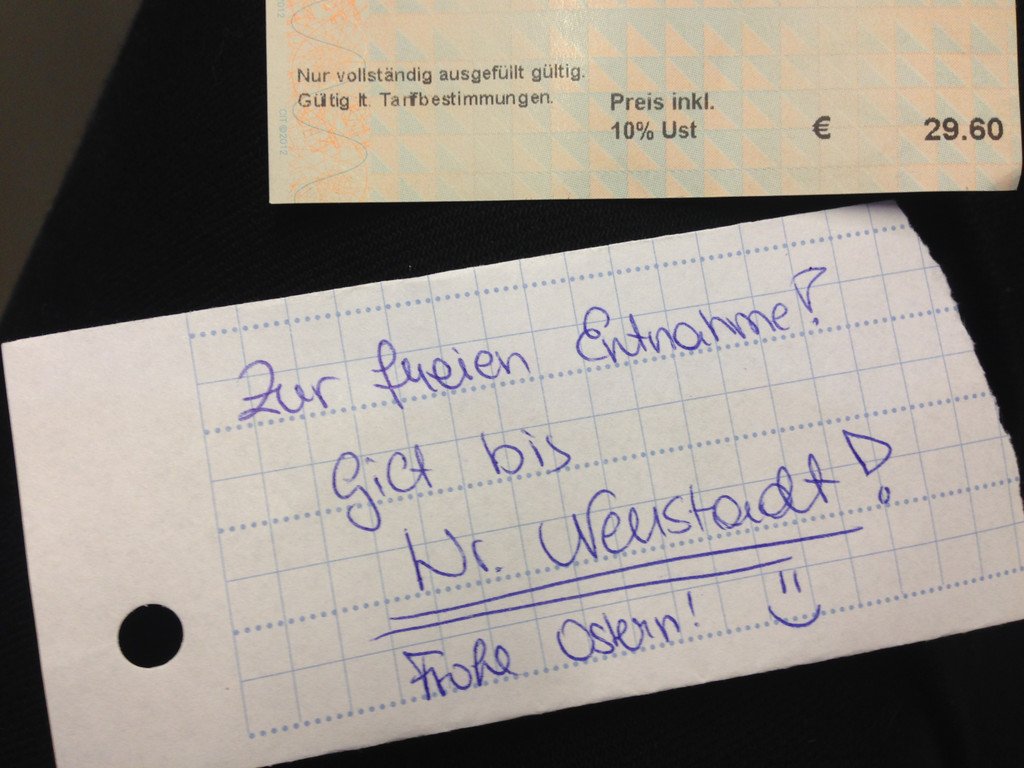 Nur vollständig ausgefüllt gültig.
Gültig lt. Tarifbestimmungen.
Preis inkl.
10% Ust € 29.60
Zur freien Entnahme!
Gilt bis
Wr. Neustadt!
Frohe Ostern! :)